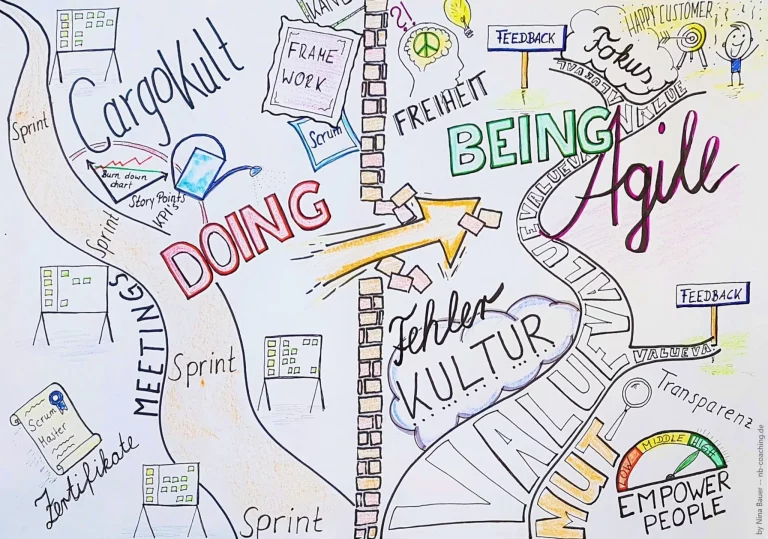 CargoKult
FRAME
WORK
Scrum
Sprint
Burn down
chart
Story Points
KPI's
Sprint
DOING
MEETINGS
Sprint
Scrum
Master
Zertifikate
Sprint
?!
FREIHEIT
FEEDBACK
HAPPY CUSTOMER
Fokus
VALUE
BEING
Agile
VALUE
VALUE
FEEDBACK
VALUEVA
Fehler
KULTUR
VALUE
Transparenz
MUT
LOW MIDDLE HIGH
EMPOWER
PEOPLE
by Nina Bauer -- nb-coaching.de